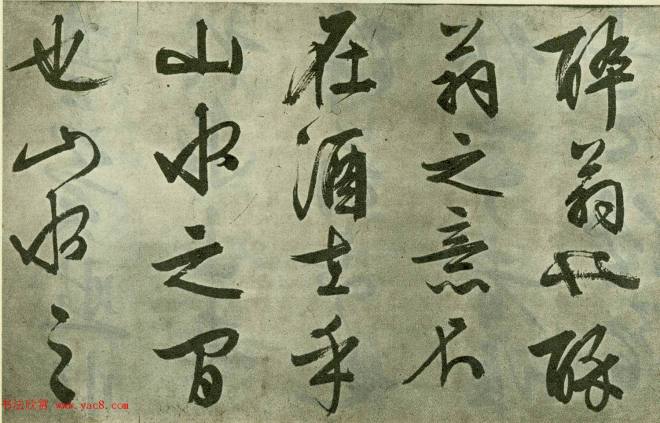 醉翁也醉
翁之意不
在酒在乎
山水之间
也山水之
书法欣赏 www.yac8.com